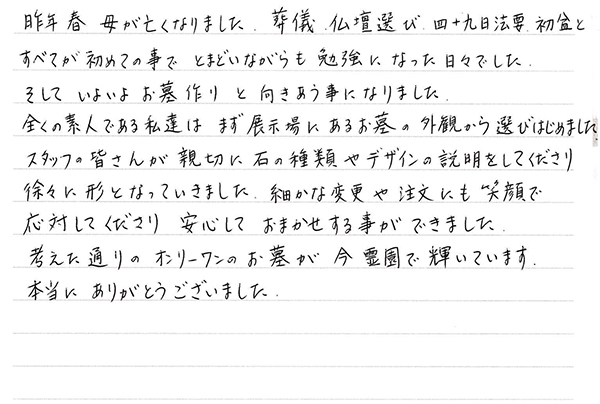 昨年春 母が亡くなりました. 葬儀.仏壇選び.四十九日法要.初盆と
すべてが初めての事で とまどいながらも 勉強に なった日々でした.
そして いよいよ お墓作り と 向きあう事になりました.
全くの素人である私達は まず展示場にあるお墓の 外観から選びはじめました
スタッフの皆さんが 親切に 石の種類やデザインの説明をしてくださり
徐々に形となっていきました. 細かな変更や注文にも 笑顔で
応対してくださり 安心して おまかせする事ができました.
考えた通りの オンリーワンのお墓が 今 霊園で輝いています.
本当に ありがとうございました.